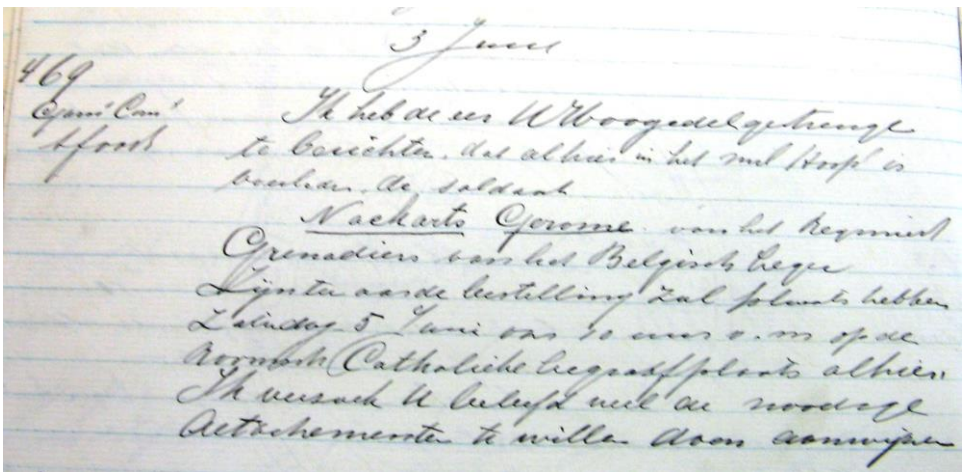 3 Juni
469
Garns Comt
Afoort
Ik heb de eer UWHoogedelgestrenge
te berichten, dat alhier in het mil Hosp is
overleden, de soldaat
Nackarts Gerome van het Regiment
Grenadiers van het Belgisch Leger
Zijn ter aarde bestelling zal plaats hebben
Zaterdag 5 Juni om 10 uur v. m op de
Roomsch Catholieke begraafplaats alhier.
Ik verzoek U beleefd wel de noodige
detachementen te willen doen aanwijzen